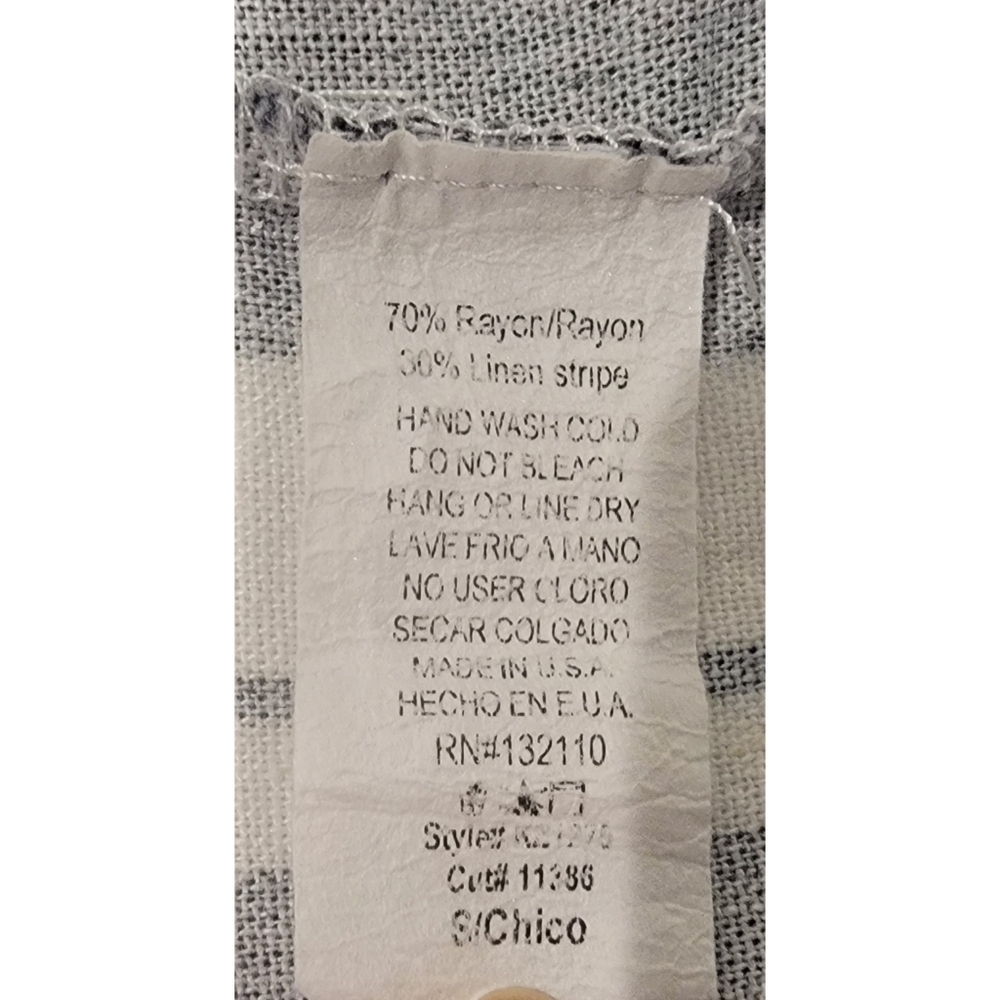 70% Rayon/Rayon
30% Linen stripe
HAND WASH COLD
DO NOT BLEACH
HANG OR LINE DRY
LAVE FRIO A MANO
NO USER CLORO
SECAR COLGADO
MADE IN U.S.A.
HECHO EN E.U.A.
RN#132110
Style#
Cut# 11386
S/Chico